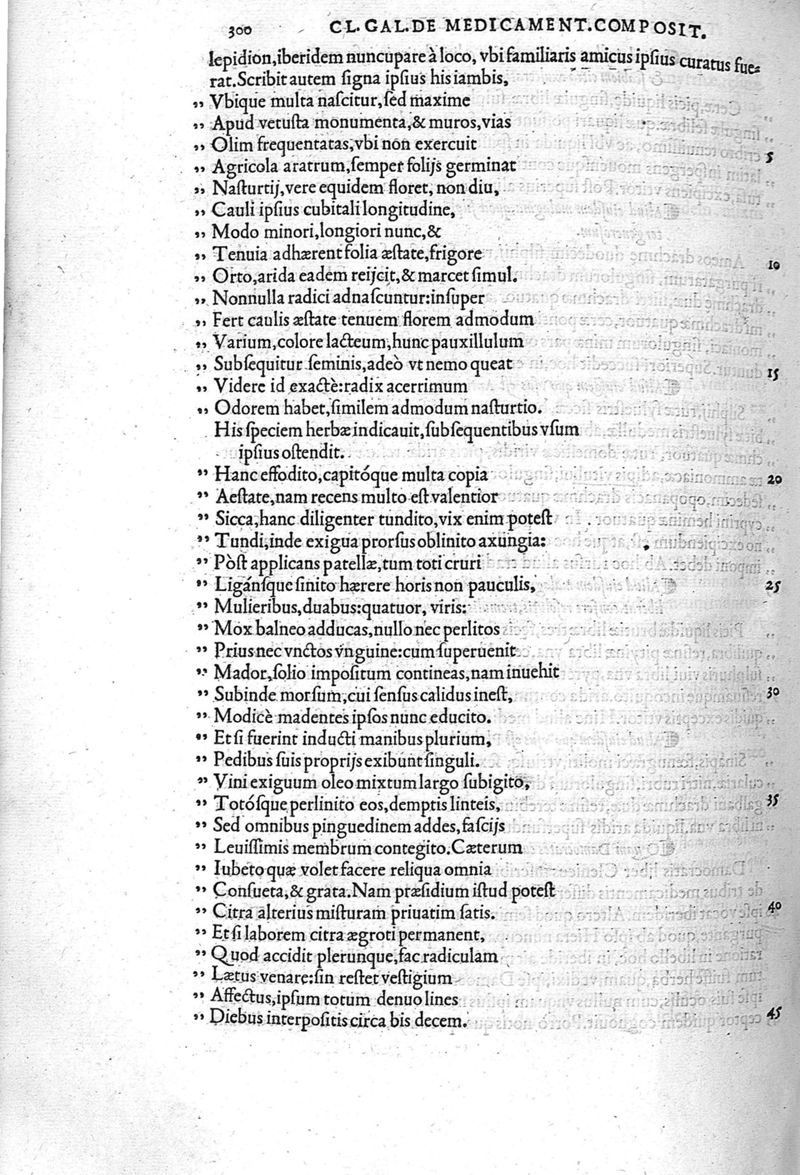 300 CL. GAL. DE MEDICAMENT. COMPOSIT.
lepidion, iberidem nuncupare à loco, vbi familiaris amicus ipsius curatus fue-
rat. Scribit autem signa ipsius his iambis,
„ Vbique multa nascitur, sed maxime
„ Apud vetusta monumenta, & muros, vias
„ Olim frequentatas, vbi non exercuit
5
„ Agricola aratrum, semper folijs germinat
„ Nasturtij, vere equidem floret, non diu,
„ Cauli ipsius cubitali longitudine,
„ Modo minori, longiori nunc, &
„ Tenuia adhærent folia æstate, frigore
10
„ Orto, arida eadem reijcit, & marcet simul.
„ Nonnulla radici adnascuntur: insuper
„ Fert caulis æstate tenuem florem admodum
„ Varium, colore lacteum, hunc pauxillulum
„ Subsequitur seminis, adeò vt nemo queat
15
„ Videre id exactè: radix acerrimum
„ Odorem habet, similem admodum nasturtio.
His speciem herbæ indicauit, subsequentibus vsum
ipsius ostendit.
” Hanc effodito, capitóque multa copia
20
” Aestate, nam recens multo est valentior
” Sicca, hanc diligenter tundito, vix enim potest
” Tundi, inde exigua prorsus oblinito axungia:
” Pòst applicans patellæ, tum toti cruri
” Ligánsque sinito hærere horis non pauculis,
25
” Mulieribus, duabus: quatuor, viris:
” Mox balneo adducas, nullo nec perlitos
” Prius nec vnctos vnguine: cum superuenit
” Mador, solio impositum contineas, nam inuehit
” Subinde morsum, cui sensus calidus inest,
30
” Modicè madentes ipsos nunc educito.
” Et si fuerint inducti manibus plurium,
” Pedibus suis proprijs exibunt singuli.
” Vini exiguum oleo mixtum largo subigito,
” Totósque perlinito eos, demptis linteis,
35
” Sed omnibus pinguedinem addes, fascijs
” Leuissimis membrum contegito. Cæterum
” Iubeto quæ volet facere reliqua omnia
” Consueta, & grata. Nam præsidium istud potest
” Citra alterius misturam priuatim satis.
40
” Et si laborem citra ægroti permanent,
” Quod accidit plerunque, fac radiculam
” Lætus venare: sin restet vestigium
” Affectus, ipsum totum denuo lines
” Diebus interpositis circa bis decem.
45